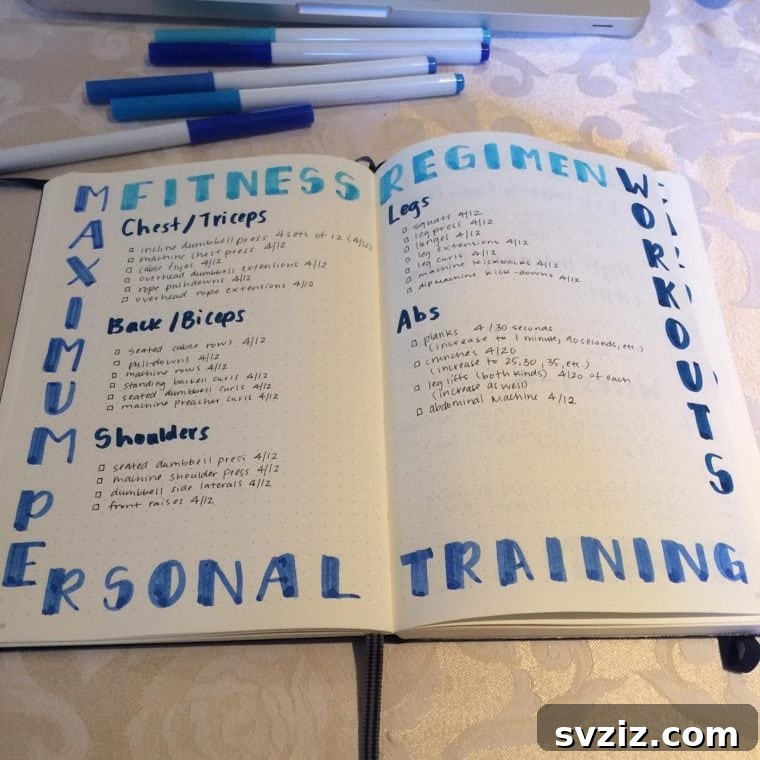 MAXIMUM
FITNESS
Chest/Triceps
□ incline dumbbell press 4 sets of 12 (4/12)
□ machine chest press 4/12
□ cable flyes 4/12
□ overhead dumbbell extensions 4/12
□ rope pushdowns 4/12
□ overhead rope extensions 4/12
Back/Biceps
□ seated cable rows 4/12
□ pulldowns 4/12
□ machine rows 4/12
□ standing barbell curls 4/12
□ seated dumbbell curls 4/12
□ machine preacher curls 4/12
Shoulders
□ seated dumbbell press 4/12
□ machine shoulder press 4/12
□ dumbbell side laterals 4/12
□ front raises 4/12
PERSONAL
REGIMEN
WORKOUTS
Legs
□ squats 4/12
□ leg press 4/12
□ lunges 4/12
□ leg extensions 4/12
□ leg curls 4/12
□ machine kickbacks 4/12
□ dip machine kick-downs 4/12
Abs
□ planks 4/30 seconds
(increase to 1 minute, 90 seconds, etc.)
□ crunches 4/20
(increase to 25, 30, 35, etc.)
□ leg lifts (both kinds) 4/20 of each
(increase as well)
□ abdominal machine 4/12
TRAINING
svziz.com